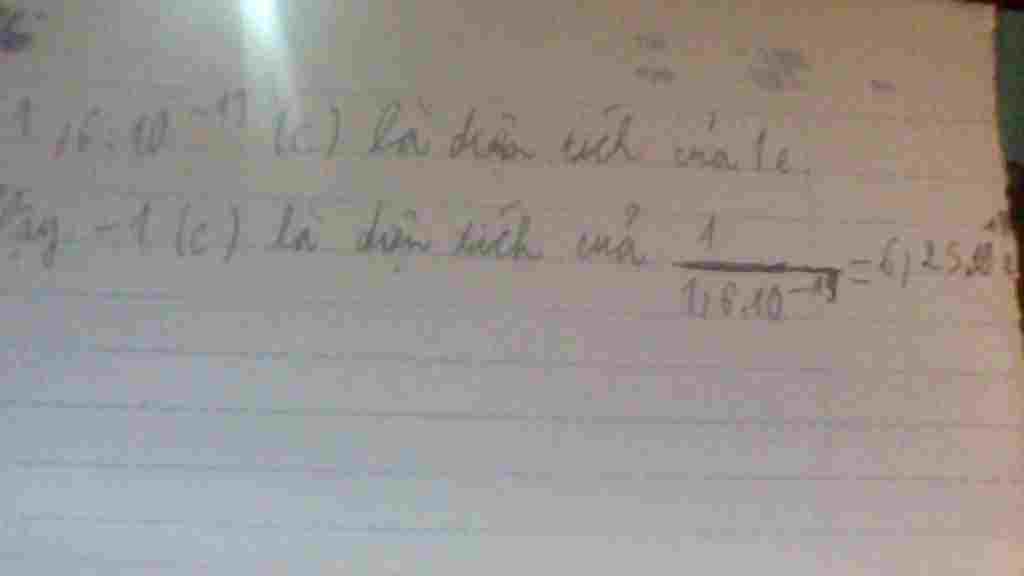 1,6.10⁻¹⁹ (c) là điện tích của 1e.
Vậy -1 (c) là điện tích của 1/(1,6.10⁻¹⁹) = 6,25.10¹⁸ e